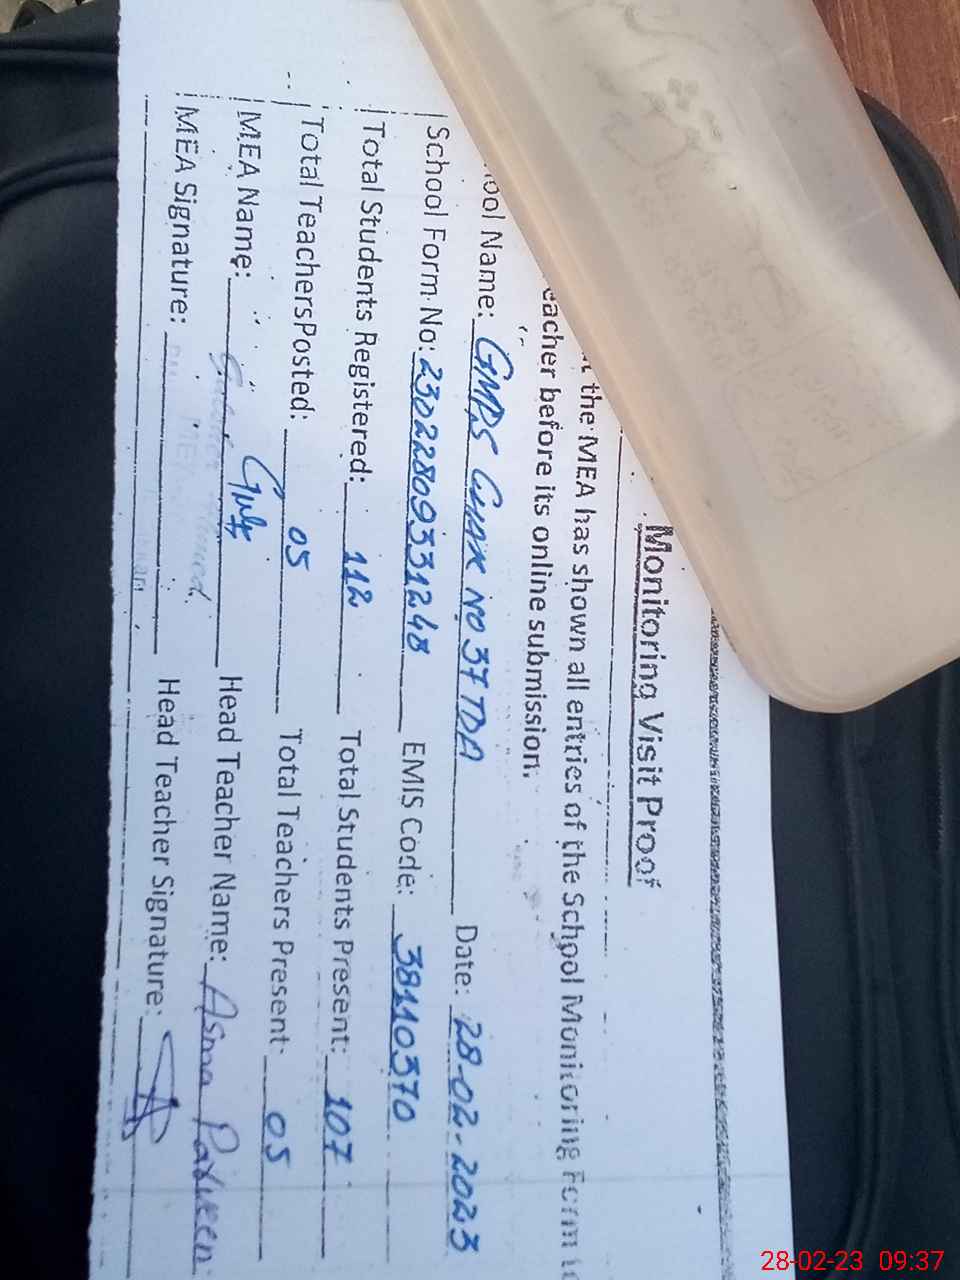 Monitoring Visit Proof
the MEA has shown all entries of the School Monitoring Form to
eacher before its online submission.
ool Name: GMPS CHAK NO 37 TDA Date: 28-02-2023
School Form No: 23022809331248 EMIS Code: 38110370
Total Students Registered: 112 Total Students Present: 107
Total TeachersPosted: 05 Total Teachers Present: 05
MEA Name: Head Teacher Name: Asma Parveen
MEA Signature: Head Teacher Signature:
28-02-23 09:37